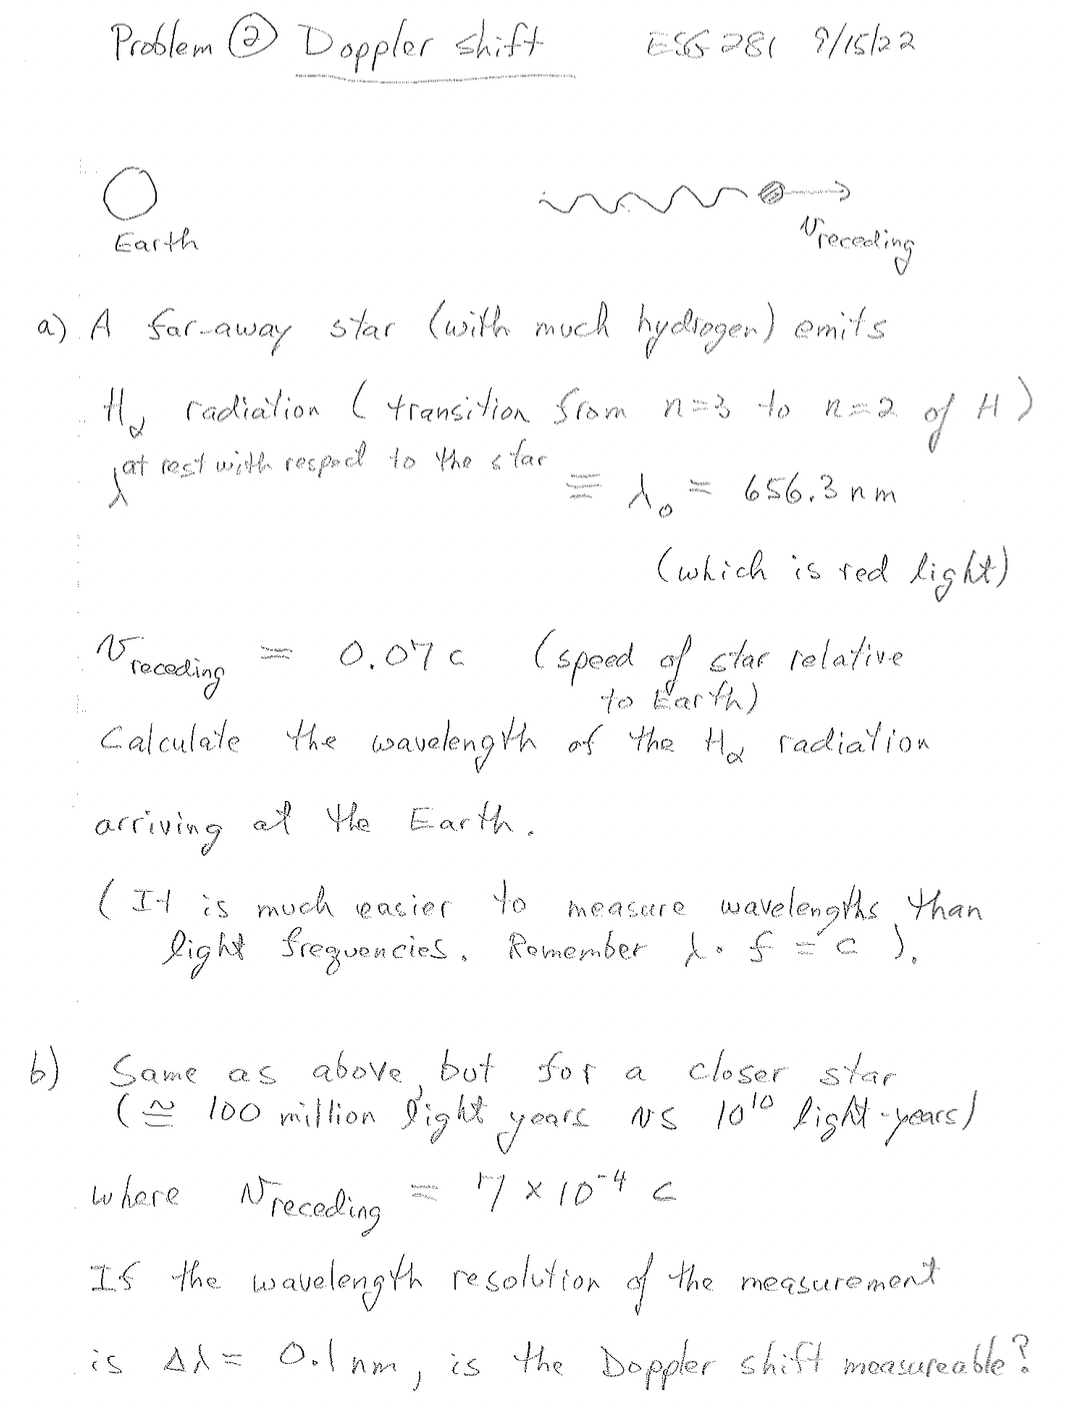 Problem ② Doppler shift ESG 281 9/15/22
Earth
v receding
a) A far-away star (with much hydrogen) emits
Hα radiation (transition from n=3 to n=2 of H)
λ at rest with respect to the star ≡ λ₀ = 656.3 nm
(which is red light)
v receding = 0.07 c (speed of star relative
to Earth)
Calculate the wavelength of the Hα radiation
arriving at the Earth.
(It is much easier to measure wavelengths than
light frequencies. Remember λ · f = c ).
b) Same as above, but for a closer star
(≅ 100 million light years vs 10¹⁰ light-years)
where v receding = 7 × 10⁻⁴ c
If the wavelength resolution of the measurement
is Δλ = 0.1 nm, is the Doppler shift measureable?